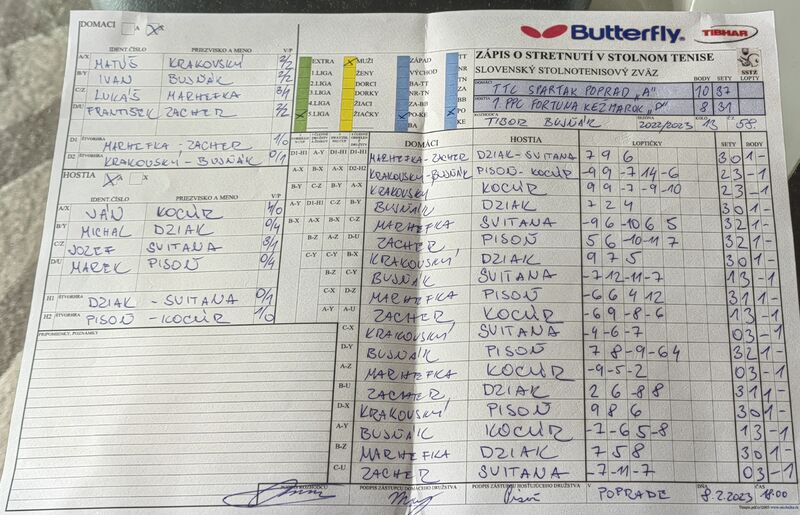 DOMÁCI A X
IDENT.ČÍSLO PRIEZVISKO A MENO V/P
A/X MATÚŠ KRAKOVSKÝ 2/2
B/Y IVAN BUJŇÁK 2/2
C/Z LUKÁŠ MARHEFKA 3/1
D/U FRANTIŠEK ZACHER 2/2
D1 ŠTVORHRA MARHEFKA - ZACHER 1/0
D2 ŠTVORHRA KRAKOVSKÝ - BUJŇÁK 0/1
HOSTIA A X
IDENT.ČÍSLO PRIEZVISKO A MENO V/P
A/X JÁN KOCÚR 4/0
B/Y MICHAL DZIAK 0/4
C/Z JOZEF SVITANA 3/1
D/U MAREK PISOŇ 0/4
H1 ŠTVORHRA DZIAK - SVITANA 0/1
H2 ŠTVORHRA PISOŇ - KOCÚR 1/0
PRIPOMIENKY, POZNÁMKY
EXTRA MUŽI ZÁPAD TT
1.LIGA ŽENY VÝCHOD NR
2.LIGA DORCI BA-TT TN
3.LIGA DORKY ZA
4.LIGA ŽIACI ZA-BB BB
5.LIGA ŽIAČKY PO-KE PO
BA KE
Butterfly TIBHAR
ZÁPIS O STRETNUTÍ V STOLNOM TENISE
SLOVENSKÝ STOLNOTENISOVÝ ZVÄZ SSTZ
BODY SETY LOPTY
TTC SPARTAK POPRAD "A" 10 37
HOSTIA 1. PPC FORTUNA KEŽMAROK "B" 8 31
ROZHODCA TIBOR BUJŇÁK SEZÓNA 2022/2023 KOLO 13 58.
DOMÁCI HOSTIA LOPTIČKY SETY BODY
MARHEFKA-ZACHER DZIAK-SVITANA 7 9 6 3 0 1 -
KRAKOVSKÝ-BUJŇÁK PISOŇ-KOCÚR -9 9 -7 14 -6 2 3 - 1
KRAKOVSKÝ KOCÚR 9 9 -7 -9 -10 2 3 - 1
BUJŇÁK DZIAK 7 2 4 3 0 1 -
MARHEFKA SVITANA -9 6 -10 6 5 3 2 1 -
ZACHER PISOŇ 5 6 -10 -11 7 3 2 1 -
KRAKOVSKÝ DZIAK 9 7 5 3 0 1 -
BUJŇÁK SVITANA -7 12 -11 -7 1 3 - 1
MARHEFKA PISOŇ -6 6 4 12 3 1 1 -
ZACHER KOCÚR -6 9 -8 -6 1 3 - 1
C-X KRAKOVSKÝ SVITANA -4 -6 -7 0 3 - 1
D-Y BUJŇÁK PISOŇ 7 8 -9 -6 4 3 2 1 -
A-Z MARHEFKA KOCÚR -9 -5 -2 0 3 - 1
B-U ZACHER DZIAK 2 6 -8 8 3 1 1 -
D-X KRAKOVSKÝ PISOŇ 9 8 6 3 0 1 -
A-Y BUJŇÁK KOCÚR -7 -6 5 -8 1 3 - 1
B-Z MARHEFKA DZIAK 7 5 8 3 0 1 -
C-U ZACHER SVITANA -7 -11 -7 0 3 - 1
PODPIS ROZHODCU PODPIS ZÁSTUPCU DOMÁCEHO DRUŽSTVA PODPIS ZÁSTUPCU HOSŤUJÚCEHO DRUŽSTVA V POPRADE DŇA 8.2.2023 ČAS 18:00